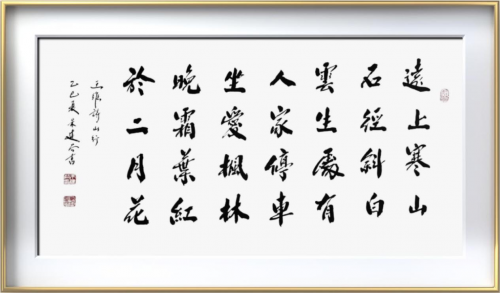 遠上寒山
石徑斜白
雲生處有
人家停車
坐愛楓林
晚霜葉紅
於二月花
詩山行
乙巳夏書